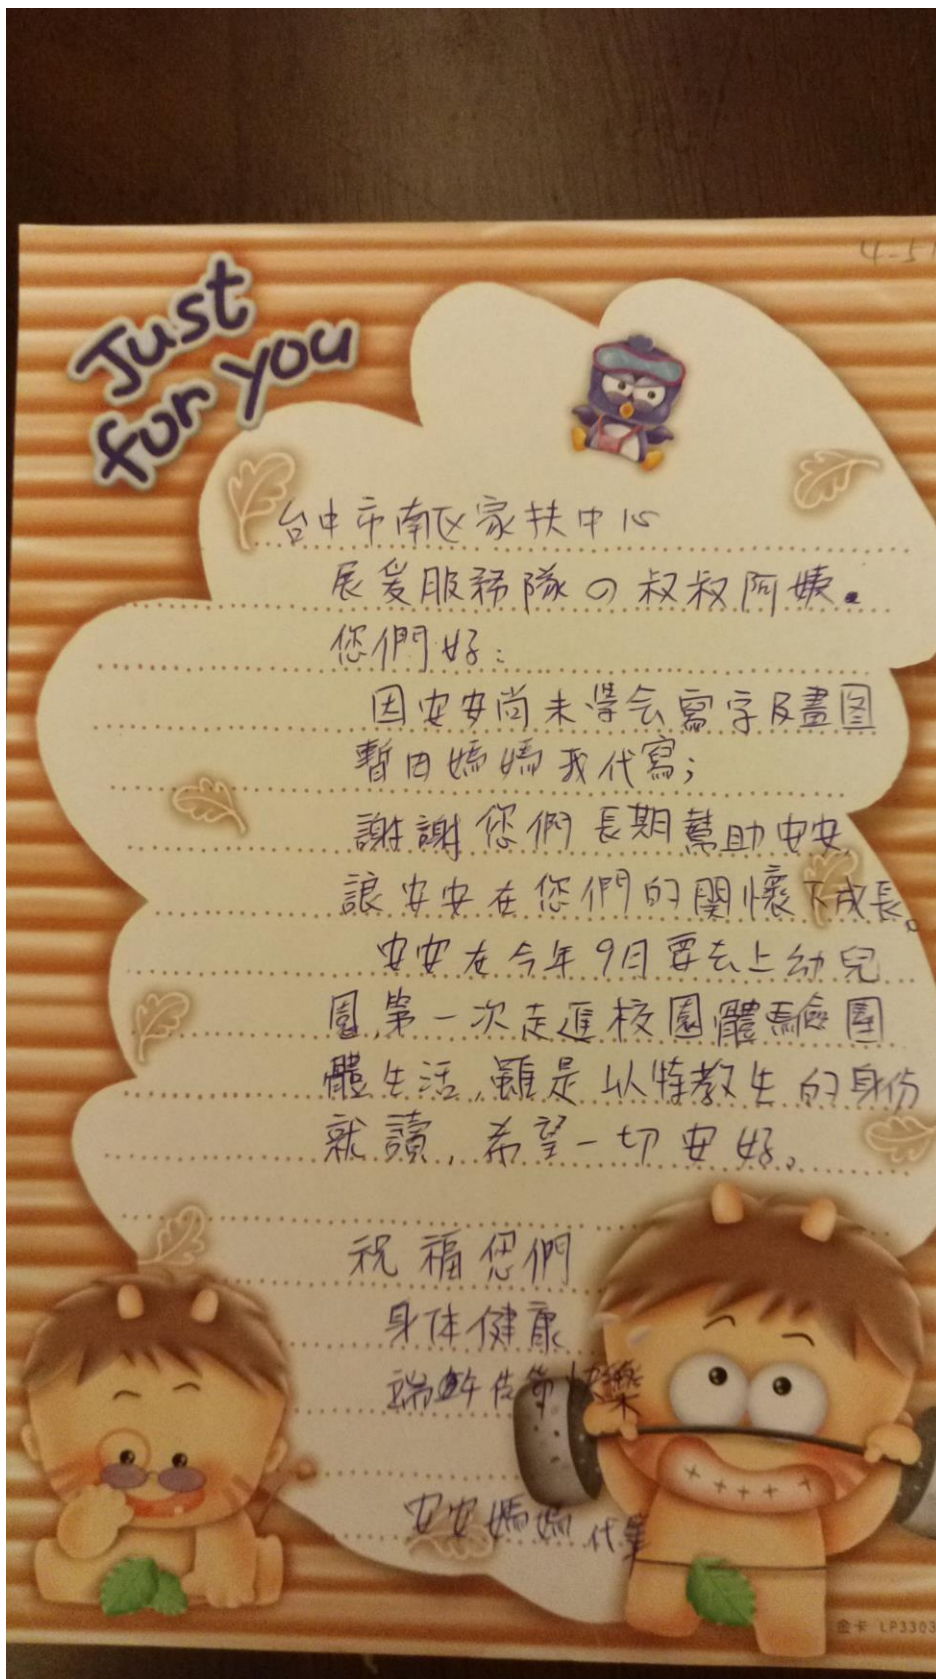 4-51
Just
for you
台中市南区家扶中心
展爱服務隊の叔叔阿姨。
您們好:
因安安尚未學会寫字及畫图
暫由媽媽我代寫;
謝謝您們長期幫助安安
讓安安在您們的関懷下成長。
安安在今年9月要去上幼兒
園,第一次走進校園體驗團
體生活,雖是以特教生的身份
就讀,希望一切安好。
祝福您們
身体健康
端午佳節快樂
安安媽媽代筆
金卡 LP3303